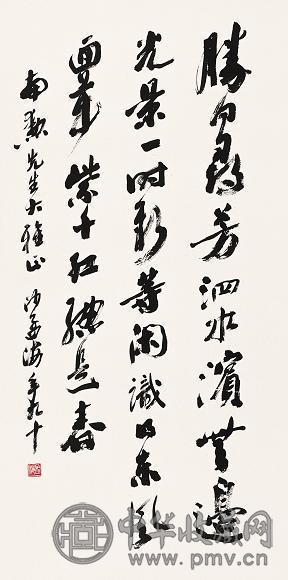 勝日尋芳泗水濱無邊
光景一時新等閑識得東風
面萬紫千紅總是春
南勳先生大雅正 沙孟海年九十
中华收藏网
www.pmv.cn